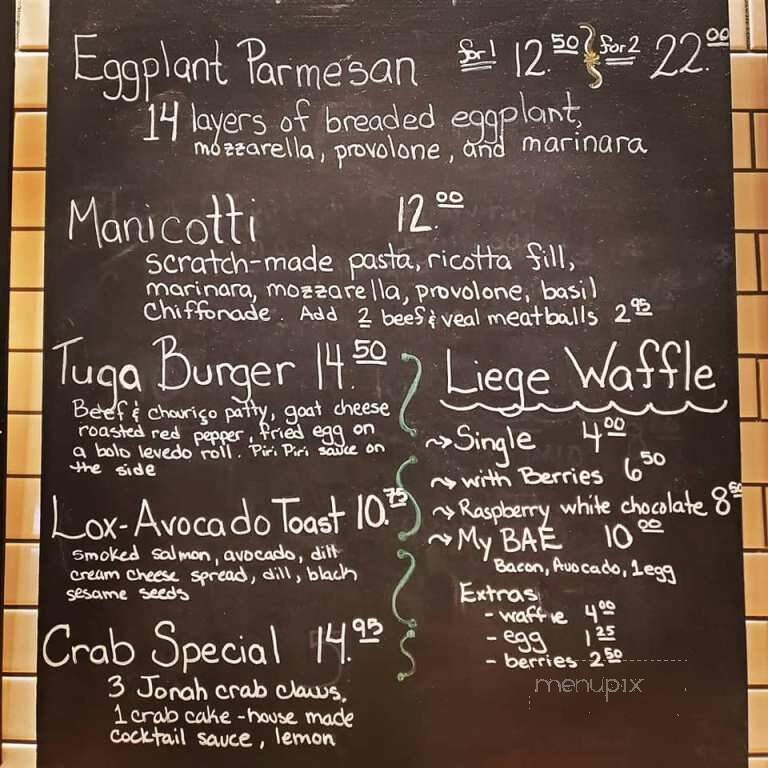 Eggplant Parmesan for 1 12.50 for 2 22.00
14 layers of breaded eggplant,
mozzarella, provolone, and marinara
Manicotti 12.00
scratch-made pasta, ricotta fill,
marinara, mozzarella, provolone, basil
chiffonade. Add 2 beef & veal meatballs 2.95
Tuga Burger 14.50
Beef & chouriço patty, goat cheese
roasted red pepper, fried egg on
a bolo levedo roll. Piri Piri sauce on
the side
Lox-Avocado Toast 10.75
smoked salmon, avocado, dill
cream cheese spread, dill, black
sesame seeds
Crab Special 14.95
3 Jonah crab claws,
1 crab cake - house made
cocktail sauce, lemon
Liege Waffle
~> Single 4.00
~> with Berries 6.50
~> Raspberry white chocolate 8.50
~> My BAE 10.00
Bacon, Avocado, 1 egg
Extras
- waffle 4.00
- egg 1.25
- berries 2.50
menupix